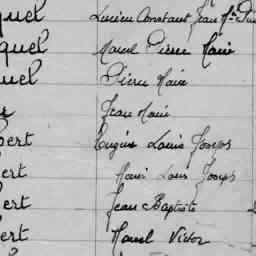 quel Lucien Constant Jean Mie
quel Marcel Pierre Marie
uel Pierre Marie
Jean Marie
bert Eugène Louis Joseph
ert Marie Louis Joseph
ert Jean Baptiste
ert Marcel Victor